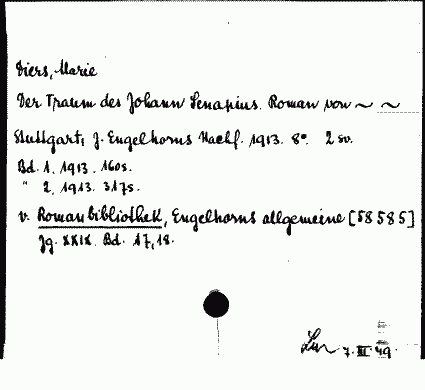 Diers, Marie
Der Traum des Johann Senapius. Roman von ~ ~
Stuttgart, J. Engelhorns Nachf. 1913. 8°. 2 Bv.
Bd. 1. 1913. 160 S.
" 2. 1913. 317 S.
v. Romanbibliothek, Engelhorns allgemeine [58 585]
Jg. XXIX. Bd. 17, 18.
7. III. 49.